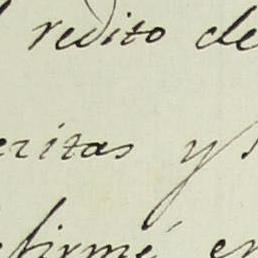 redito de
eritas y
firmé en